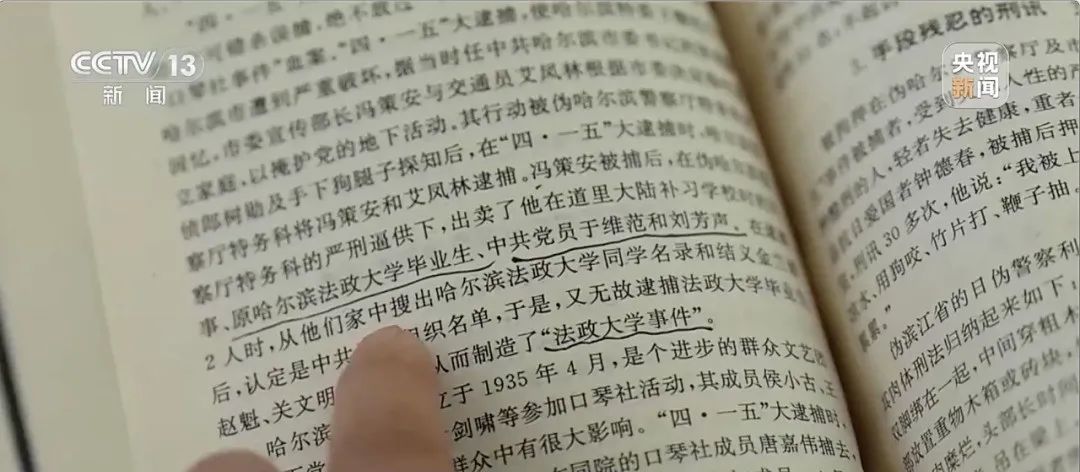 CCTV 13
新闻
央视
新闻
“四·一五”
可错杀误捕，绝不放过
口琴社事件”血案。“四·一五”大逮捕，使哈尔滨特委下辖的
哈尔滨市遭到严重破坏，据当时任中共哈尔滨市委书记的
回忆，市委宣传部长冯策安与交通员艾风林根据市委决
立家庭，以掩护党的地下活动，其行动被伪哈尔滨警察厅特
侦郎柯勋及手下狗腿子探知后，在“四·一五”大逮捕时，哈
察厅特务科将冯策安和艾风林逮捕。冯策安被捕后，在伪哈尔滨
察厅特务科的严刑逼供下，出卖了他在道里大陆补习学校时的
事、原哈尔滨法政大学毕业生、中共党员于维范和刘芳声。在逮
2人时，从他们家中搜出哈尔滨法政大学同学名录和结义金兰
后，认定是中共 组织名单，于是，又无故逮捕法政大学毕业生
赵魁、关文明 从而制造了“法政大学事件”。
哈尔滨 立于1935年4月，是个进步的群众文艺
剑啸等参加口琴社活动，其成员侯小古、王
群众中有很大影响。“四·一五”大逮捕时，
同院的口琴社成员唐嘉伟捕去，
3.手段残忍的刑讯
被拘押在伪哈尔 察厅及
事件被捕者，受到 人性的严
刑的人，轻者失去健康，重者
抗日爱国者钟德春，被捕后押
刑讯30多次，他说：“我被上
凉水、用狗咬、竹片打、鞭子抽。
伪滨江省的日伪警察利
肉体刑法归纳起来如下：
双脚绑在一起，中间穿粗木
部放置重物木箱或砖块，
糜烂，头部长时间